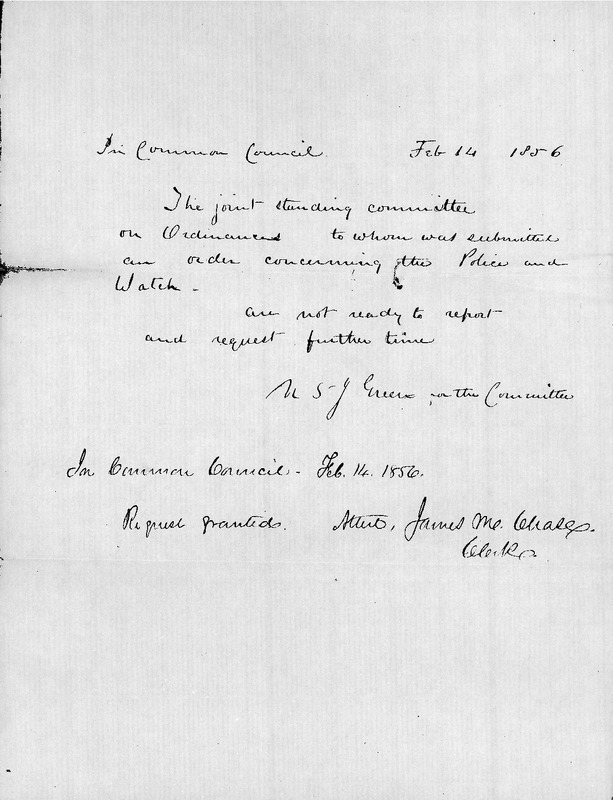 In Common Council Feb 14 1856
The joint standing committee
on Ordinances to whom was submitted
an order concerning the Police and
Watch -
are not ready to report
and request further time
N S J Green for the Committee
In Common Council - Feb. 14. 1856.
Request granted. Attest, James M. Chase,
Clerk.